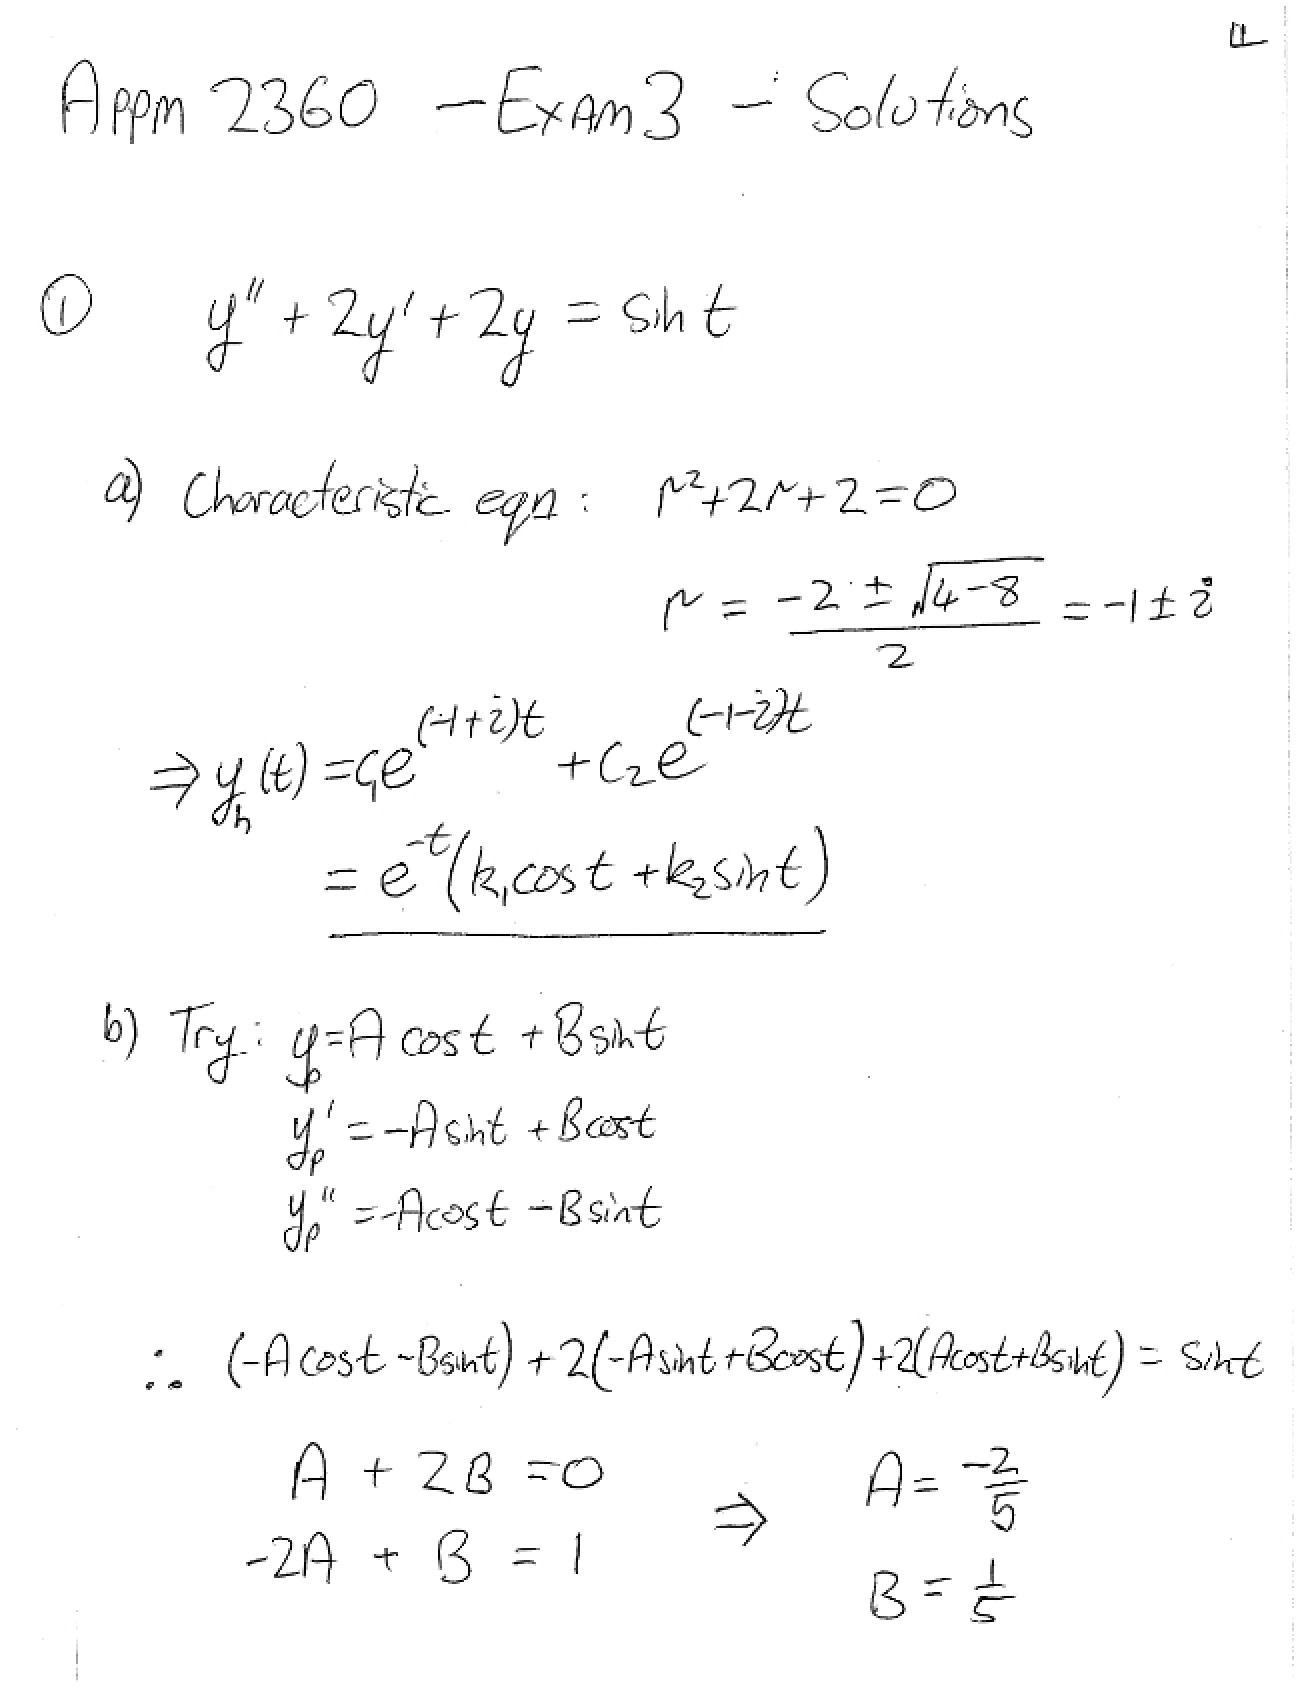 1
APPM 2360 - EXAM 3 - Solutions
① y'' + 2y' + 2y = sin t
a) Characteristic eqn: r²+2r+2=0
r = (-2 ± √(4-8))/2 = -1 ± i
⇒ y_h(t) = c₁e^((-1+i)t) + c₂e^((-1-i)t)
= e^(-t)(k₁cos t + k₂sin t)
b) Try: y_p = A cos t + B sin t
y_p' = -A sin t + B cos t
y_p'' = -A cos t - B sin t
∴ (-A cos t - B sin t) + 2(-A sin t + B cos t) + 2(A cos t + B sin t) = sin t
A + 2B = 0 ⇒ A = -2/5
-2A + B = 1 B = 1/5